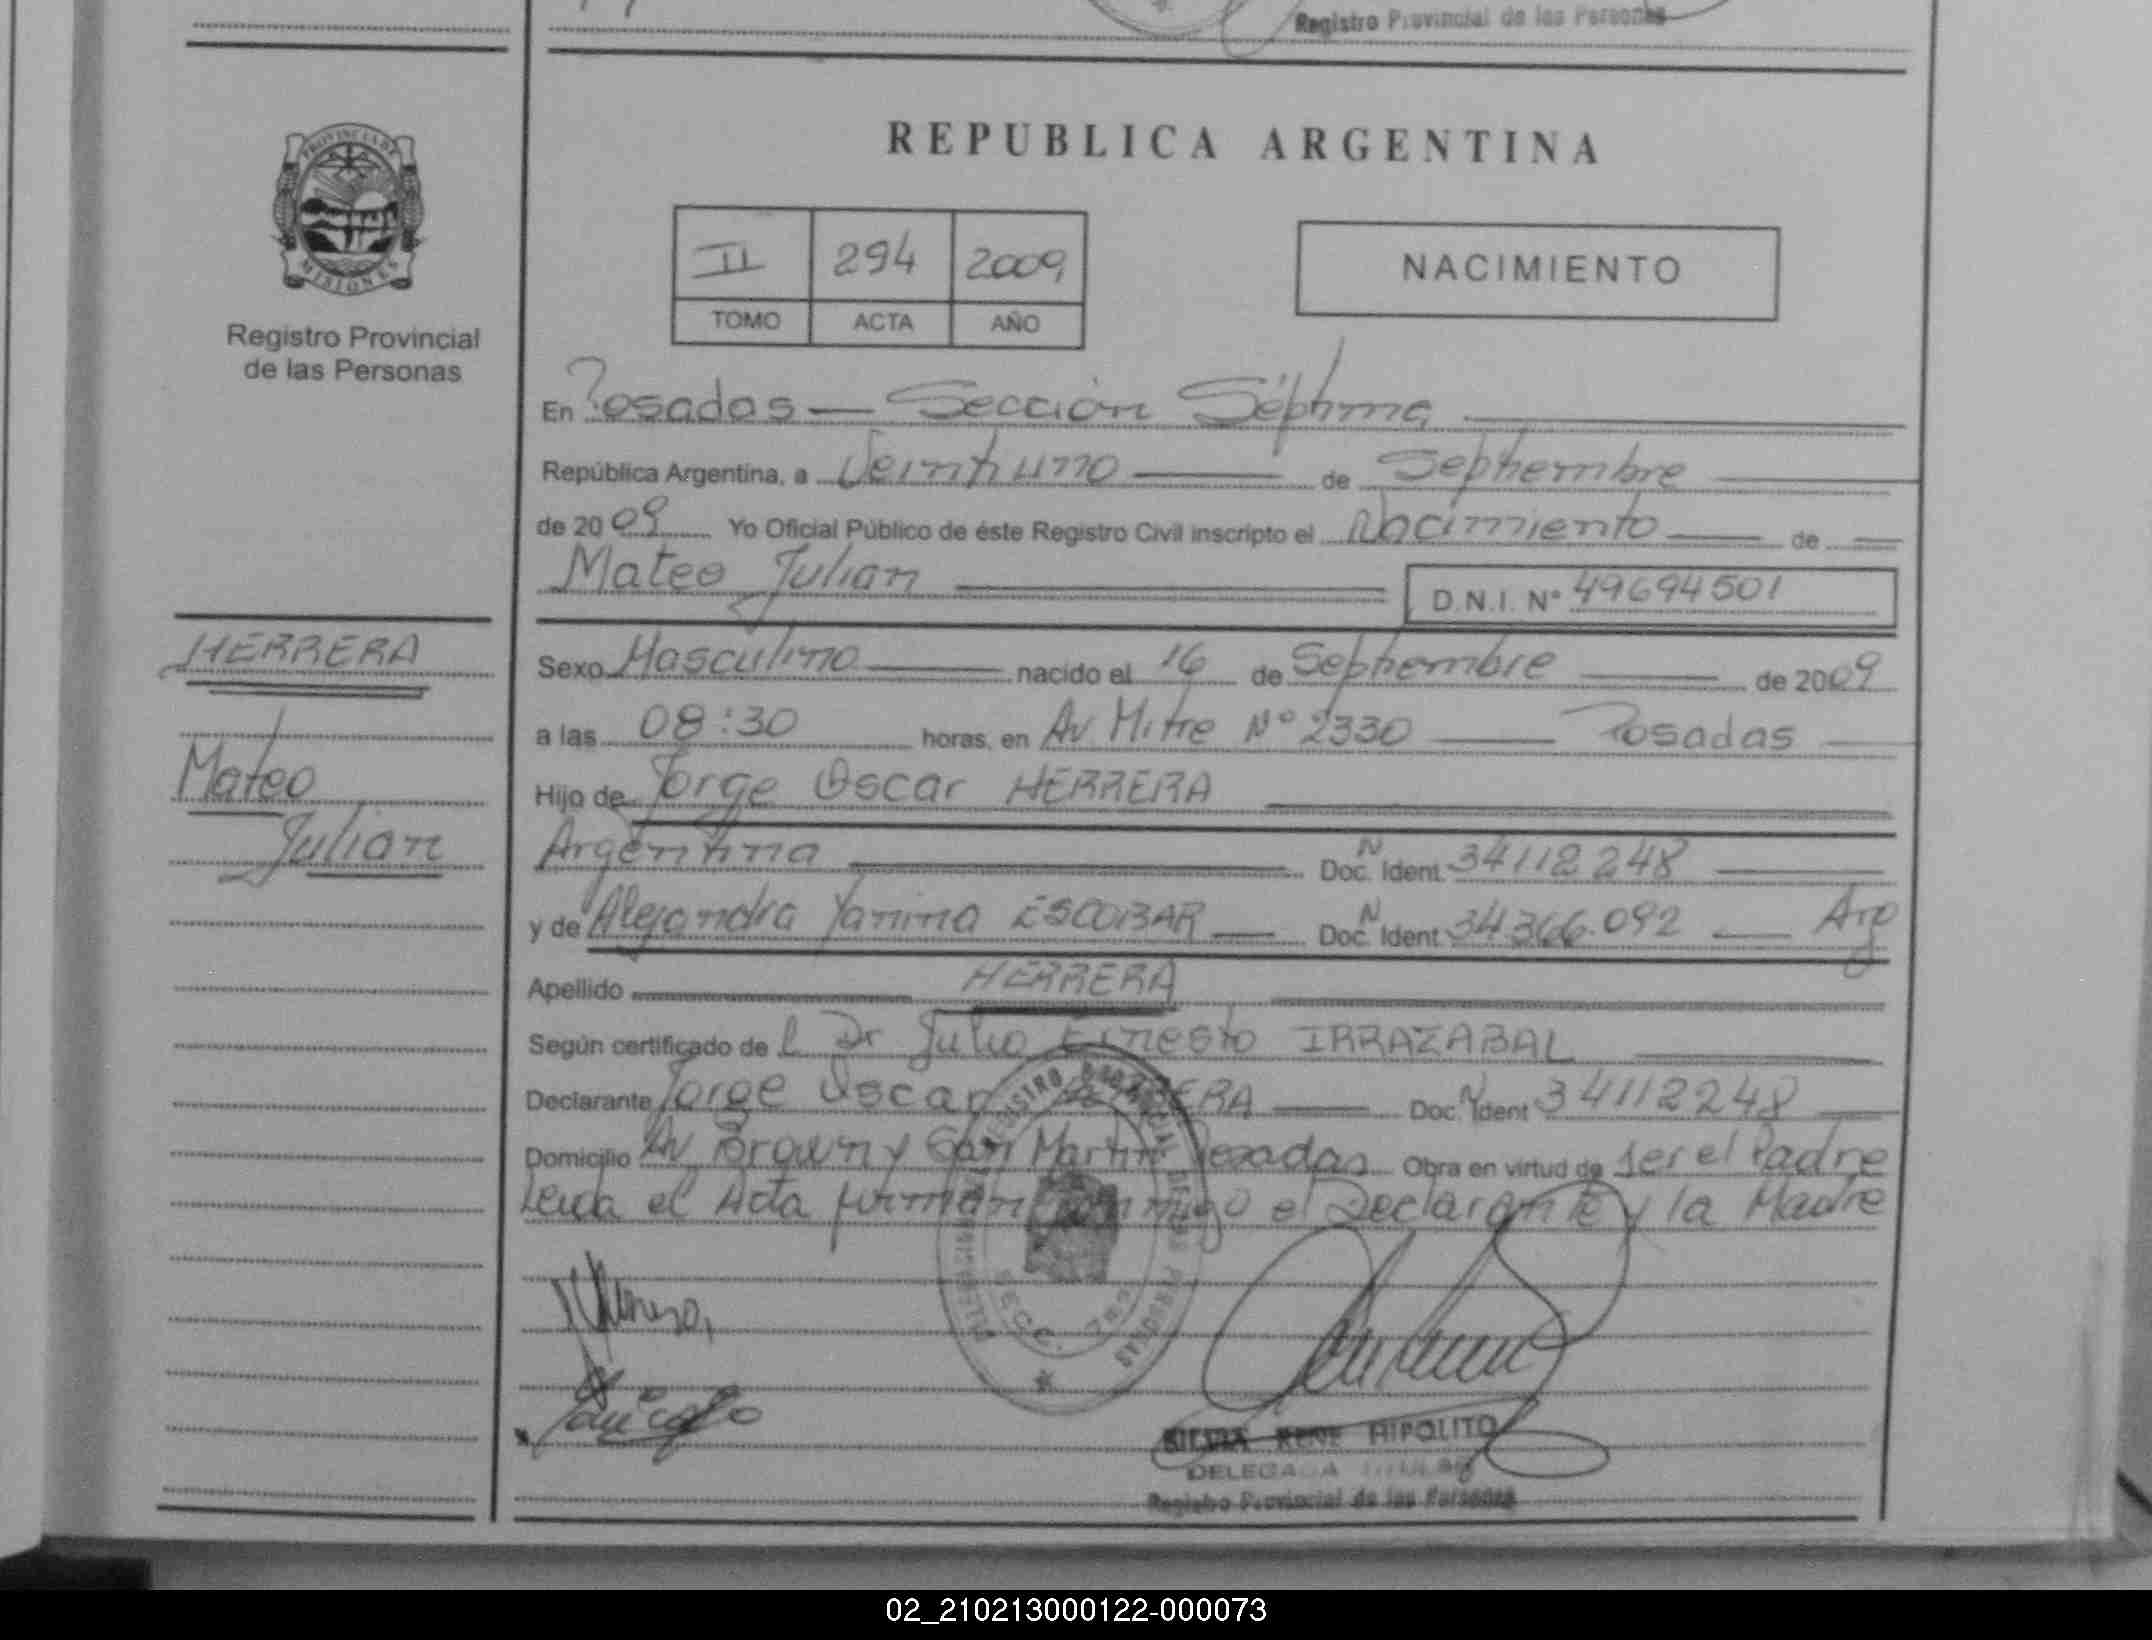 Registro Provincial de las Personas
PROVINCIA DE
MISIONES
Registro Provincial
de las Personas
REPUBLICA ARGENTINA
II 294 2009
TOMO ACTA AÑO
NACIMIENTO
En Posadas — Sección Séptima
República Argentina, a Veintiuno de Septiembre
de 2009 Yo Oficial Público de éste Registro Civil inscripto el Nacimiento de
Mateo Julian D.N.I. Nº 49694501
HERRERA
Mateo
Julian
Sexo Masculino nacido el 16 de Septiembre de 2009
a las 08:30 horas, en Av. Mitre Nº 2330 — Posadas
Hijo de Jorge Oscar HERRERA
Argentina Doc. N Ident. 34112248
y de Alejandra Yanina ESCOBAR — Doc. N Ident. 34366.092 — Arg
Apellido HERRERA
Según certificado del Dr Julio Ernesto IRRAZABAL
Declarante Jorge Oscar HERRERA — Doc. N Ident 34112248
Domicilio Av Brown y San Martin Posadas Obra en virtud de ser el Padre
Leida el Acta firman conmigo el Declarante y la Madre
REGISTRO PROVINCIAL DE LAS PERSONAS
SECC. 7ma
RENE HIPOLITO
DELEGADA TITULAR
Registro Provincial de las Personas
02_210213000122-000073